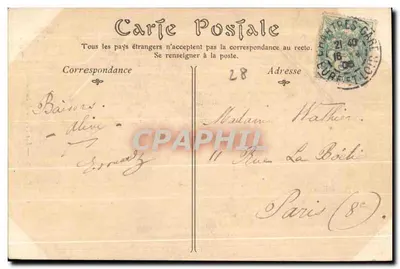 Carte Postale
Tous les pays étrangers n'acceptent pas la correspondance au recto.
Se renseigner à la poste.
Correspondance
Adresse
28
CHARTRES-GARE
21 40
EURE-ET-LOIR
Baisers
CPARAMA
Madame Wathier
11 Rue La Boëti
Paris (8e)